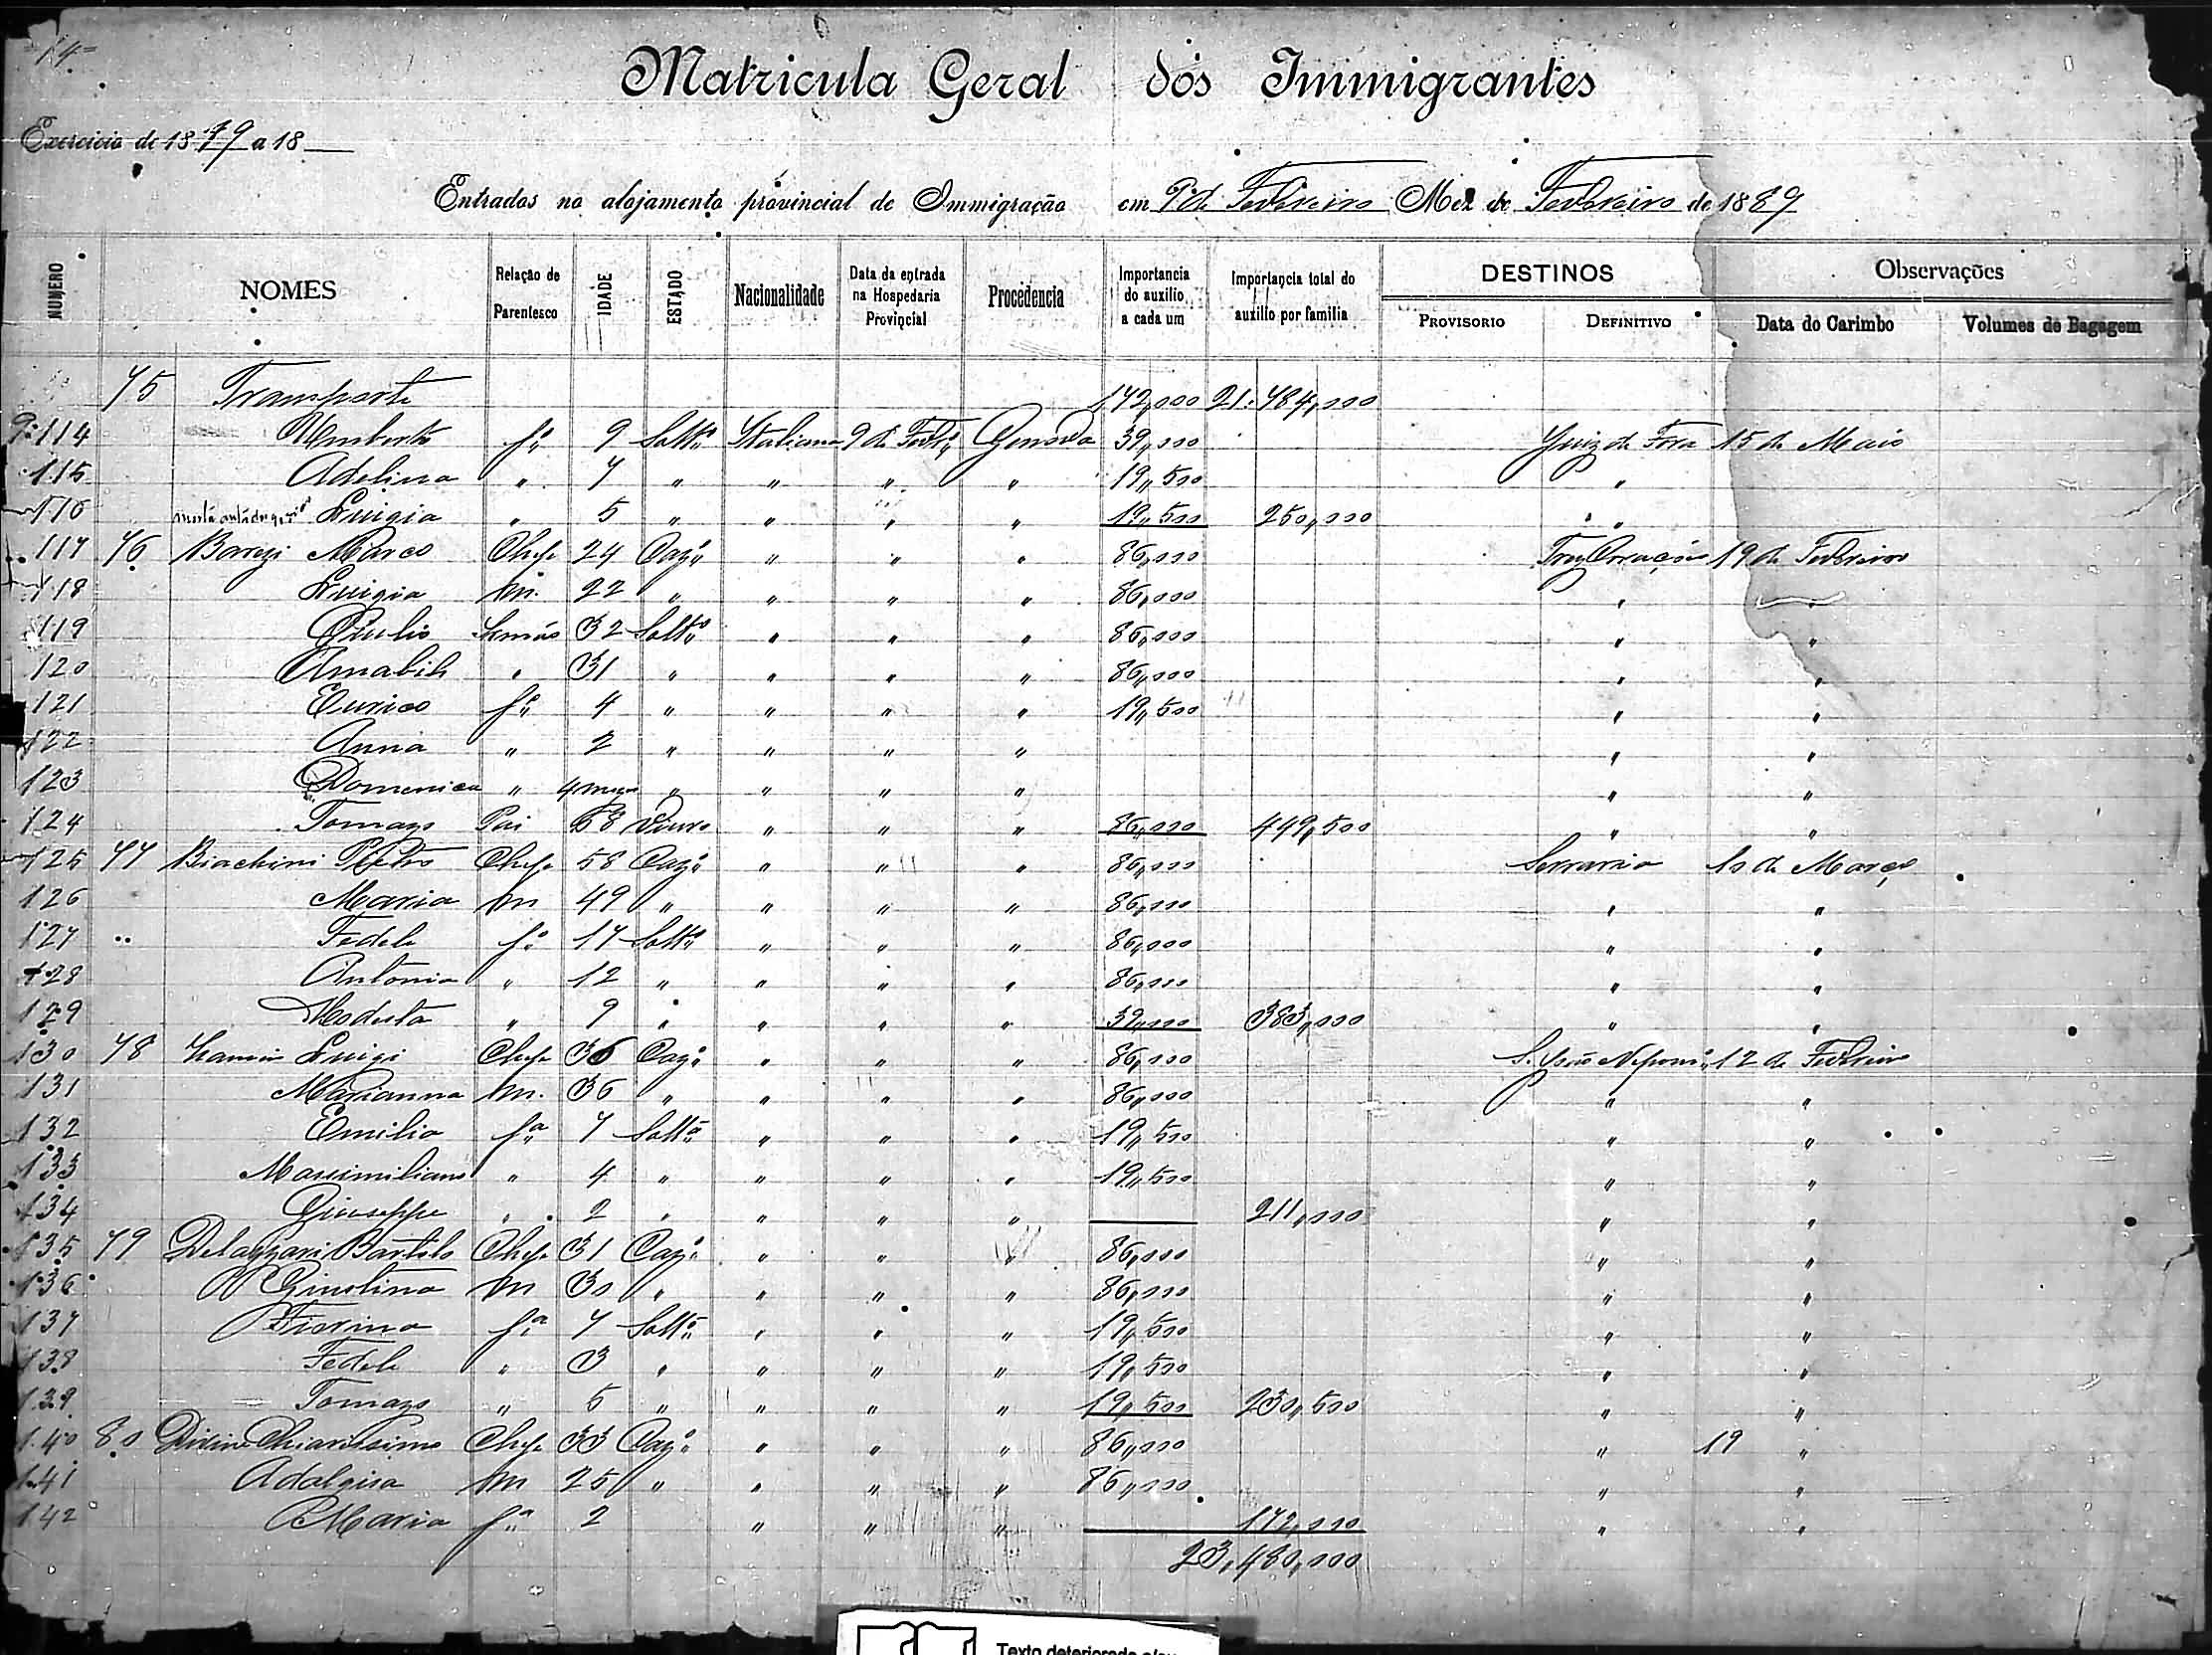 -14-
Matricula Geral dos Immigrantes
Exercicio de 1879 a 18
Entrados no alojamento provincial de Immigração em 9 de Fevereiro Mez de Fevereiro de 1889
NUMERO NOMES Relação de Parentesco IDADE ESTADO Nacionalidade Data da entrada na Hospedaria Provincial Procedencia Importancia do auxilio a cada um Importancia total do auxilio por familia DESTINOS PROVISORIO DEFINITIVO Observações Data do Carimbo Volumes de Bagagem
75 Transporte 172,000 21:784,000
114 Umberto fo 9 Soltro Italiana 9 de Febro Genova 39,000 Juiz de Fora 15 de Maio
115 Adelina " 7 " " " " 19,500 "
116 Luigia " 5 " " " " 19,500 250,000 " "
117 76 Marco Chefe 24 Cazo " " " 86,000 19 de Fevereiro
118 Luigia m. 22 " " " " 86,000 " "
119 Giulio Irmão 32 Soltro " " " 86,000 " "
120 Amabile " 31 " " " " 86,000 " "
121 Eurico fo 4 " " " " 19,500 " "
122 Anna " 2 " " " " " "
123 Domenica " 4 mezes " " " " " "
124 Tomazo Pai 68 Viuvo " " " 86,000 449,500 " "
125 77 Biachini Pietro Chefe 58 Cazo " " " 86,000 Serraria 10 de Março
126 Maria m 49 " " " " 86,000 " "
127 Fedele fo 17 Soltro " " " 86,000 " "
128 Antonia " 12 " " " " 86,000 " "
129 Modesta " 9 " " " " 39,000 383,000 " "
130 78 Luigi Chefe 36 Cazo " " " 86,000 S. João Nepomo 12 de Fevereiro
131 Marianna m. 36 " " " " 86,000 " "
132 Emilia fa 7 Soltra " " " 19,500 " "
133 Massimiliano " 4 " " " " 19,500 " "
134 Giuseppe " 2 " " " " 211,000 " "
135 79 Delazzari Bartolo Chefe 31 Cazo " " " 86,000 " "
136 Giustina m 30 " " " " 86,000 " "
137 Fiorina fa 7 Soltra " " " 19,500 " "
138 Fedele " 3 " " " " 19,500 " "
139 Tomazo " 5 " " " " 19,500 230,500 " "
140 80 Chiarissimo Chefe 33 Cazo " " " 86,000 " 19 "
141 Adalgisa m 25 " " " " 86,000 " "
142 Maria fa 2 " " " 172,000 " "
23,480,000